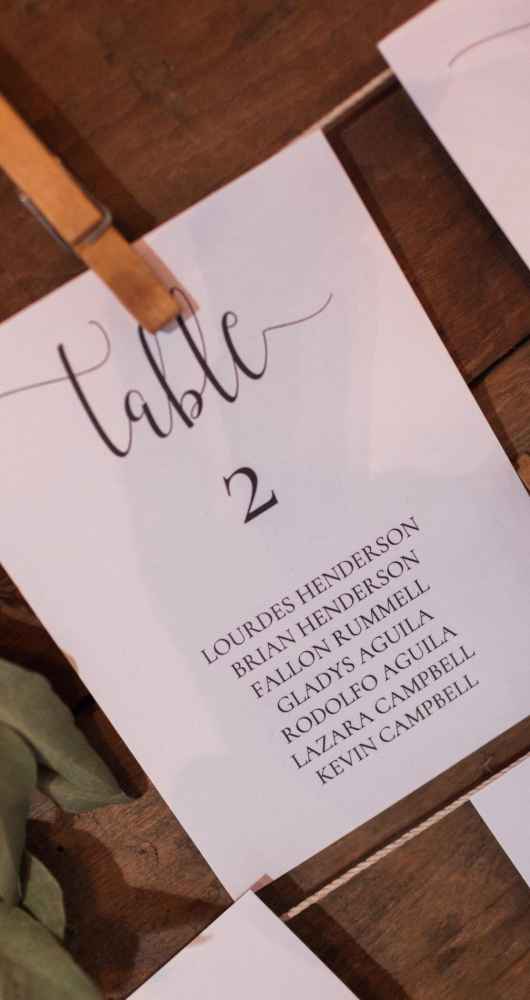 table
2
LOURDES HENDERSON
BRIAN HENDERSON
FALLON RUMMELL
GLADYS AGUILA
RODOLFO AGUILA
LAZARA CAMPBELL
KEVIN CAMPBELL